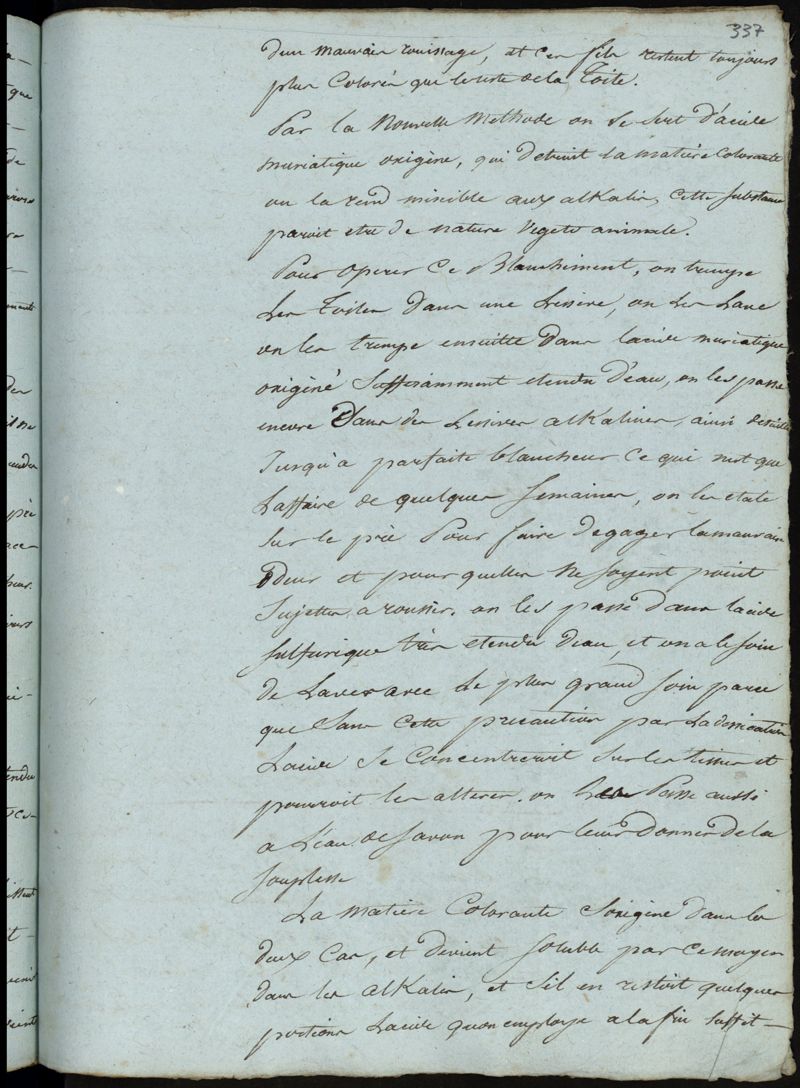 337
d'un mauvais rouissage, et ces fils restent toujours
plus Colorés que le reste de la Toile.
Par la Nouvelle Methode on se sert d'acide
muriatique oxigène, qui detruit la matiere Colorante
ou la rend miscible aux alKalis, cette substance
paroit etre de nature Vegeto animale.
Pour operer Ce Blanchiment, on trempe
Les Toiles dans une Lessive, on Les Lave
on les trempe ensuitte dans lacide muriatique
oxigèné Suffisamment etendu d'eau, on les passe
encore dans des Lessives alKalines, ainsi de suitte
Jusqu'a parfaite blancheur Ce qui n'est que
L'affaire de quelques Semaines, on les etale
sur le pré Pour faire degager la mauvaise
odeur et pour quelles ne soyent point
Sujettes a roussir. on les passe dans lacide
sulfurique très etendu deau, et on a le soin
de Laver avec Le plus grand soin parce
que Sans Cette precaution par La dessication
Lacide se Concentreroit sur les tissus et
pourroit les alterer. on Les Passe aussi
a L'eau de Savon pour leur donner de la
souplesse
La matière Colorante s'oxigène dans les
deux Cas, et devient soluble par ce moyen
dans les alKalis, et s'il en restoit quelques
portions Lacide qu'on employe a la fin suffit -